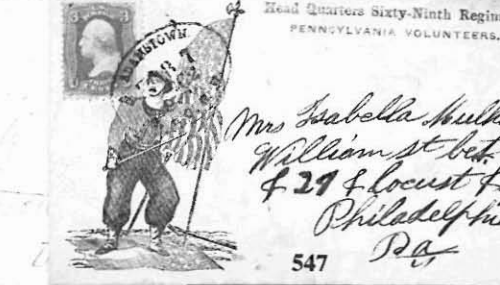 Head Quarters Sixty-Ninth
PENNSYLVANIA VOLUNTEERS,
ADAMSTOWN
Mrs Isabella
William st bet.
& 29 & locust
Philadelphi
Pa
547